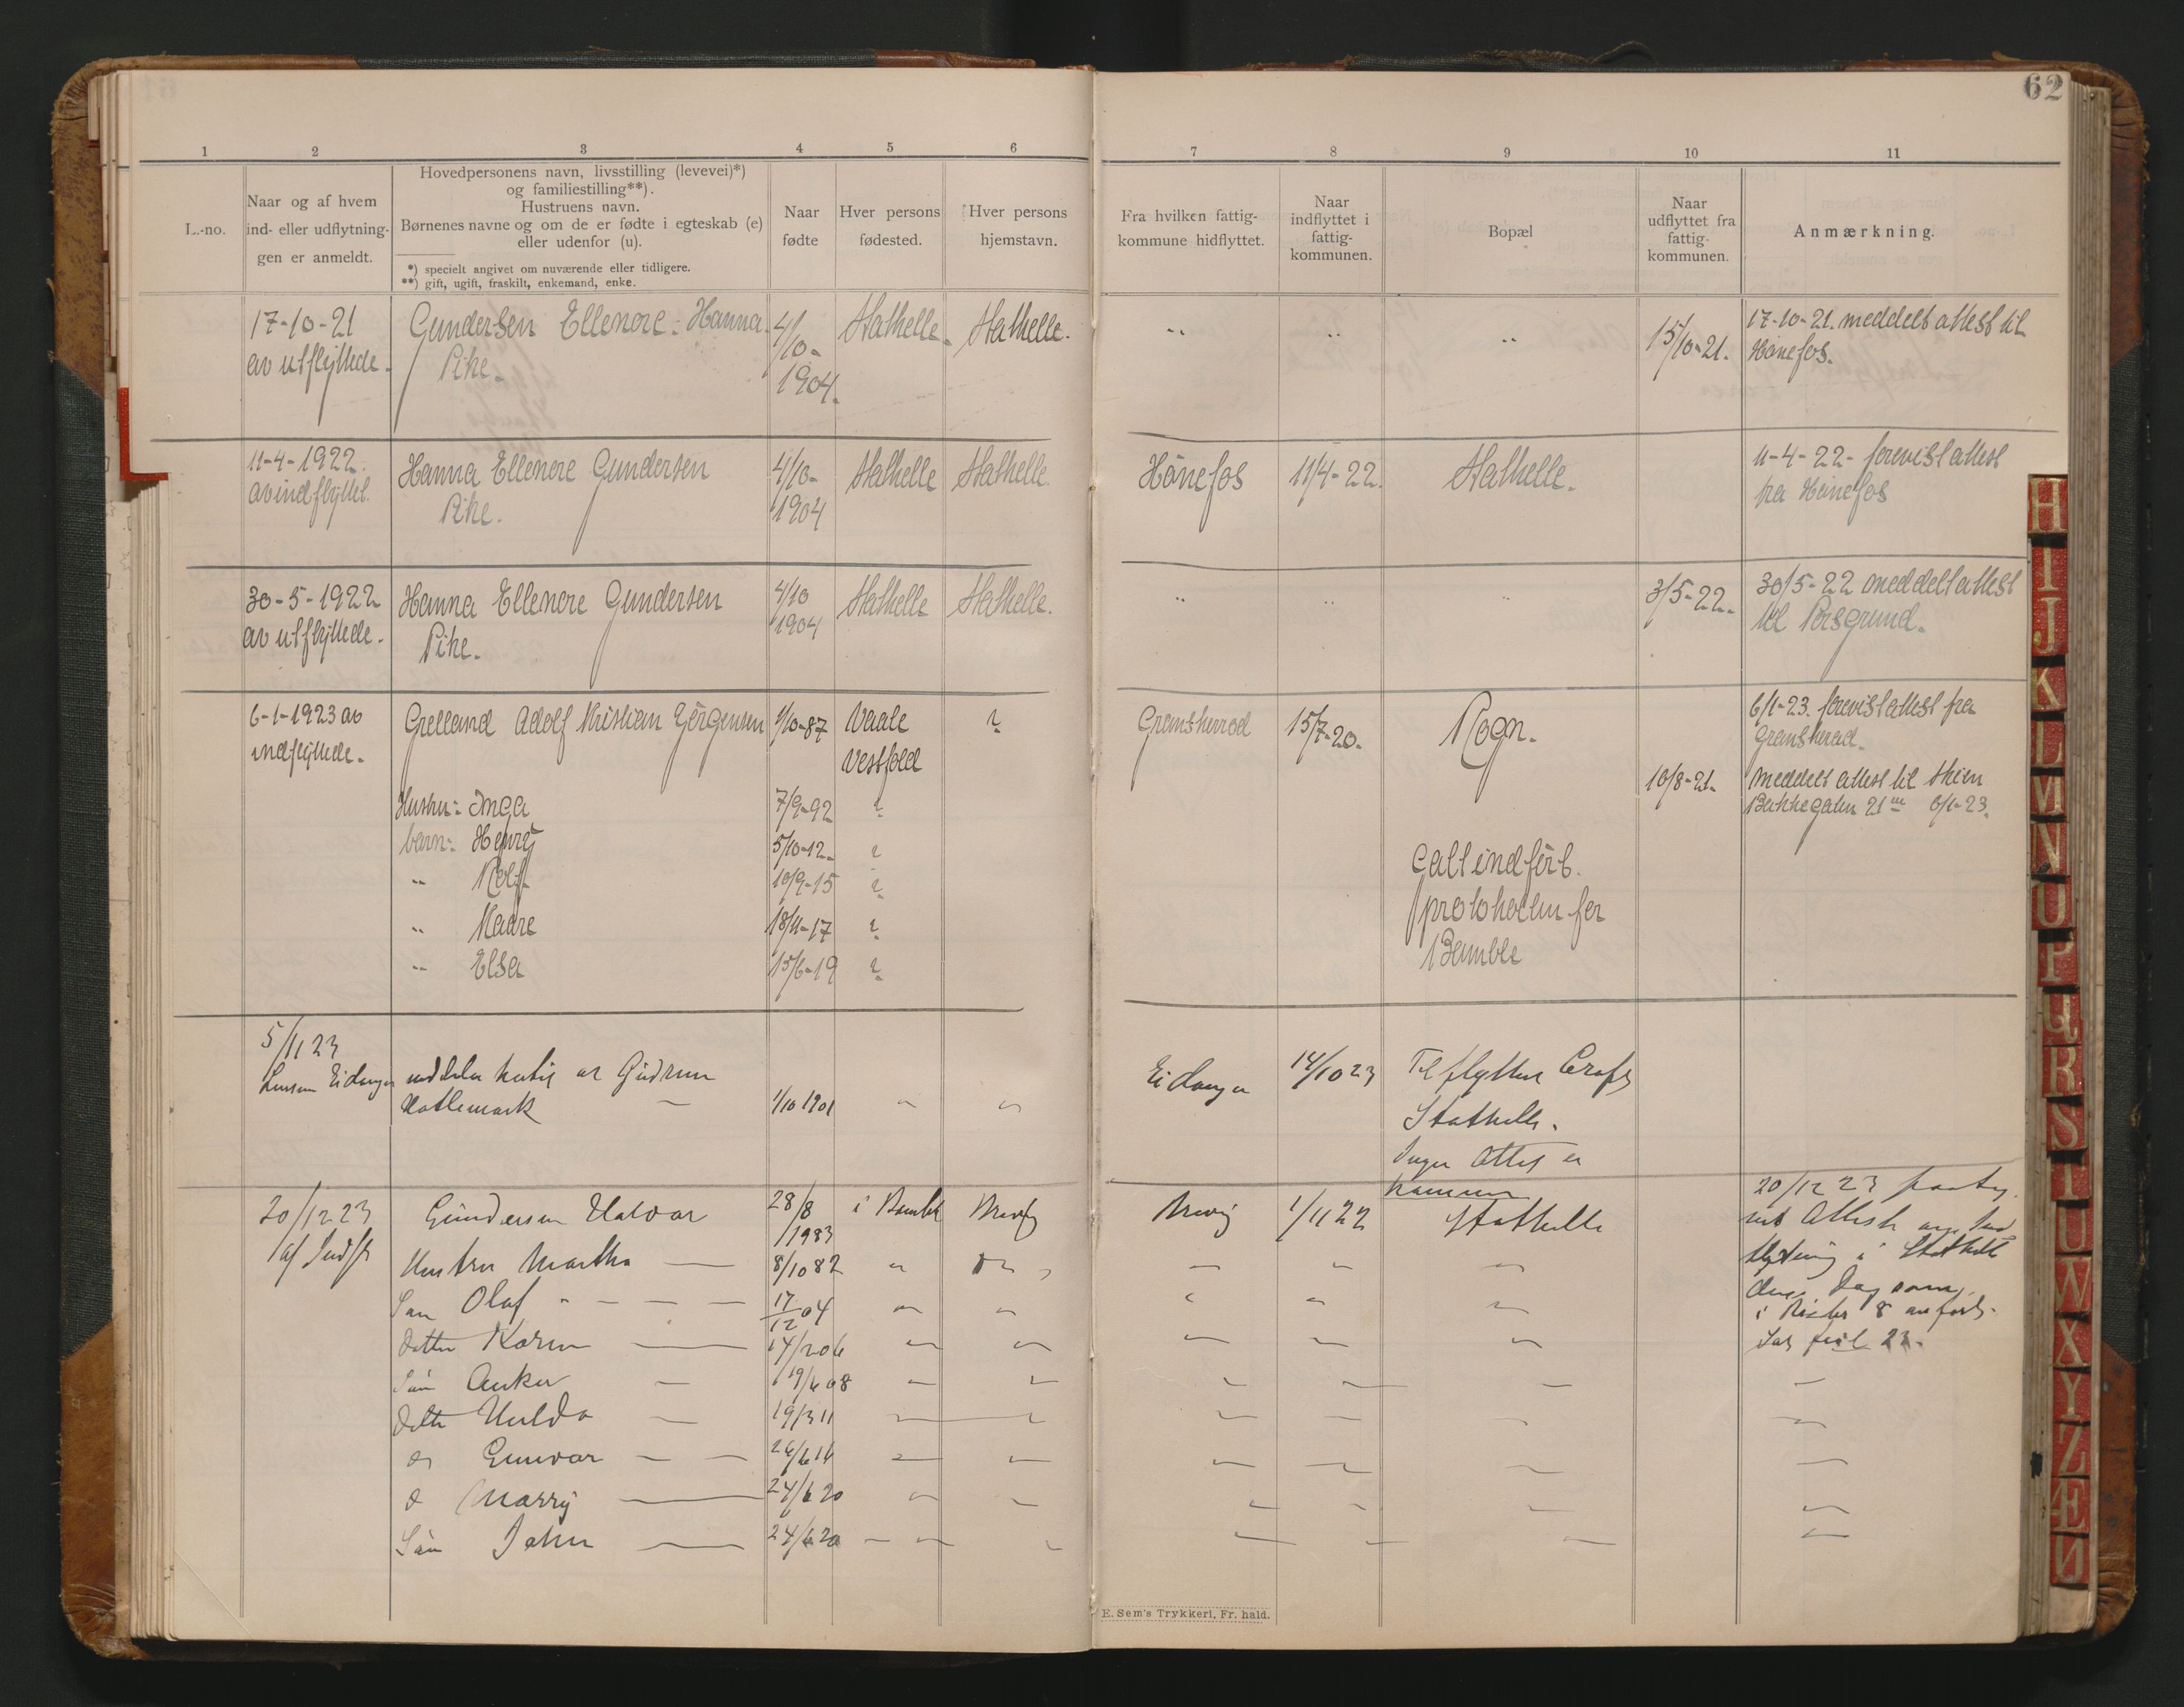 62
1 2 3 4 5 6 7 8 9 10 11
L.-no.
Naar og af hvem
ind- eller udflytnin-
gen er anmeldt.
Hovedpersonens navn, livsstilling (levevei)*)
og familiestilling**).
Hustruens navn.
Børnenes navne og om de er fødte i egteskab (e)
eller udenfor (u).
*) specielt angivet om nuværende eller tidligere.
**) gift, ugift, fraskilt, enkemand, enke.
Naar
fødte
Hver persons
fødested.
Hver persons
hjemstavn.
Fra hvilken fattig-
kommune hidflyttet.
Naar
indflyttet i
fattig-
kommunen.
Bopæl
Naar
udflyttet fra
fattig-
kommunen.
Anmærkning.
17-10-21 Gundersen Ellenore. Hanna. 4/10- Stathelle. Stathelle. " " " 15/10-21. 17-10-21. meddelt attest til
av utflyttede. Pike. 1904. Hönefos.
11-4-1922. Hanna Ellenore Gundersen 4/10- Stathelle Stathelle. Hönefos 11/4-22. Stathelle. 11-4-22- forevist attest
av indflyttet. Pike. 1904 fra Hönefos
30-5-1922 Hanna Ellenore Gundersen 4/10 Stathelle Stathelle. " " " 3/5-22. 30/5-22 meddelt attest
av utflyttede. Pike. 1904 til Porsgrund.
6-1-1923 av Grelland Adolf Kristian Jörgensen 4/10-87 Vaale ? Gransherrad 15/7-20. Rogn. 6/1-23. forevist attest fra
indflyttede. Vestfold Gransherad.
10/8-21. meddelt attest til Skien
Hustru: Inga 7/9-92 ? Bakkegaten 21 6/1-23.
barn: Henry 5/10-12. ?
" Rolf 10/9-15 ? indfört.
" Kaare 18/11-17 ? protokollen for
" Elsa 15/6-19 ? Bamble
5/11 23
Eidanger av Gudrun Eidanger 14/10 23 Til flyttet
1/10 1901 " " Stathelle.
Ingen Attest er
kommen
20/12 23 Gundersen Halvor 28/8 i Bamble Brevig Brevig 1/11 22 Stathelle 20/12 23
af Indfl 1983
Hustru Martha 8/10 82 " " " " "
Sön Olaf 17/12 04 " " " " " den Dag som
i 8 anfört.
datter Karen 14/2 06 " " " " "
Sön Anker 19/6 08 " " " " " "
datter Hulda 19/3 11 " " " " " "
d Gunvor 26/6 16 " " " " " "
d Marry 24/6 20 " " " " " "
Sön John 24/6 20 " " " " " "
E. Sem's Trykkeri, Fr. hald.
H
I
J
K
L
M
N
O
P
Q
R
S
T
U
W
X
Y
Z
Æ
Ø